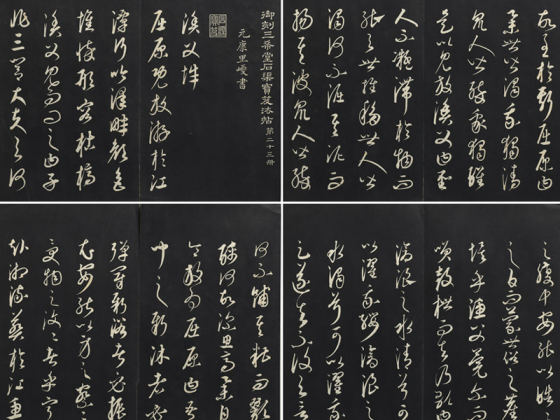 御刻三希堂石渠寶笈法帖 第二十三册
元康里巙書
漁父辭
屈原既放游於江
潭行吟澤畔顏色
憔悴形容枯槁
漁父見而問之曰子
非三閭大夫与何
故至於斯屈原曰
舉世皆濁我獨清
众人皆醉我獨醒
是以見放漁父曰聖
人不凝滯於物而
能与世推移世人皆
濁何不淈其泥而
揚其波众人皆醉
何不餔其糟而歠
醨何故深思高舉自
令放为屈原曰吾
聞之新沐者必
彈冠新浴者必振
衣安能以身之察
受物之汶汶者乎寧
赴湘流葬於江魚
之腹中安能以皓
之白而蒙世俗之塵
埃乎漁父莞尔
笑鼓枻而去乃歌曰
滄浪之水清兮可
以濯我纓滄浪
水濁兮可以濯我
遂去不復与言